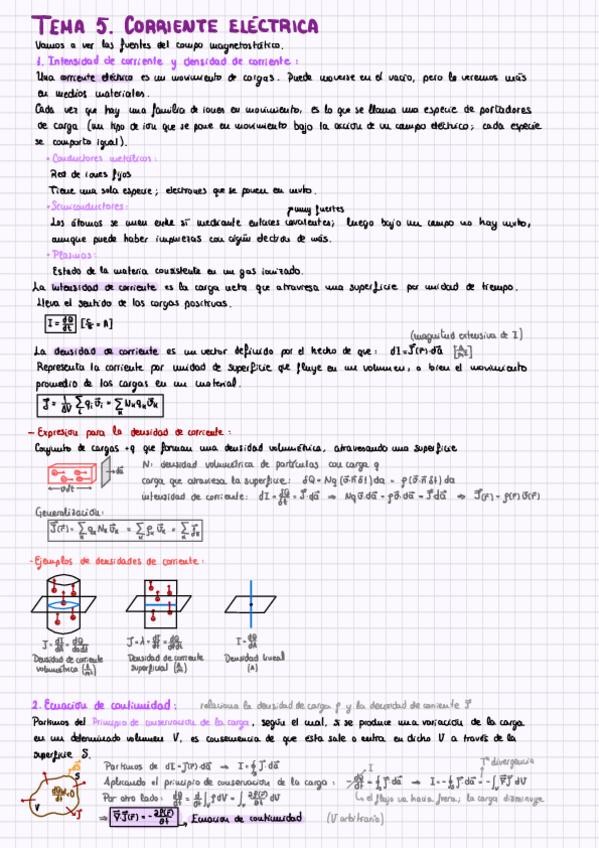 TEMA 5. CORRIENTE ELÉCTRICA
Vamos a ver las fuentes del campo magnetostático.
1. Intensidad de corriente y densidad de corriente:
Una corriente eléctrica es un movimiento de cargas. Puede moverse en el vacío, pero lo veremos más
en medios materiales.
Cada vez que hay una familia de iones en movimiento, es lo que se llama una especie de portadores
de carga (un tipo de ion que se pone en movimiento bajo la acción de un campo eléctrico; cada especie
se comporta igual).
• Conductores metálicos:
Red de iones fijos
Tiene una sola especie; electrones que se ponen en mvto.
• Semiconductores:
muy fuertes
Los átomos se unen entre sí mediante enlaces covalentes; luego bajo un campo no hay mvto,
aunque puede haber impurezas con algún electrón de más.
• Plasmas:
Estado de la materia consistente en un gas ionizado.
La intensidad de corriente es la carga neta que atraviesa una superficie por unidad de tiempo.
Lleva el sentido de las cargas positivas.
I = dQ/dt [C/s = A]
(magnitud extensiva de I)
La densidad de corriente es un vector definido por el hecho de que: dI = J(r)·da [A/m²]
Representa la corriente por unidad de superficie que fluye en un volumen, o bien el movimiento
promedio de las cargas en un material.
- Expresión para la densidad de corriente:
Conjunto de cargas +q que forman una densidad volumétrica, atravesando una superficie
N: densidad volumétrica de partículas con carga q
carga que atraviesa la superficie:
intensidad de corriente:
Generalización:
- Ejemplos de densidades de corriente:
Densidad de corriente
volumétrica
Densidad de corriente
superficial
Densidad lineal
(A)
2. Ecuación de continuidad: relaciona la densidad de carga ρ y la densidad de corriente J
Partimos del Principio de conservación de la carga, según el cual, si se produce una variación de la carga
en un determinado volumen V, es consecuencia de que esta sale o entra en dicho V a través de la
superficie S.
Partimos de dI = J(r)·da ⇒ I = ∮J·da
Tª divergencia
Aplicando el principio de conservación de la carga:
Por otro lado:
el flujo va hacia fuera; la carga disminuye
Ecuación de continuidad (V arbitrario)